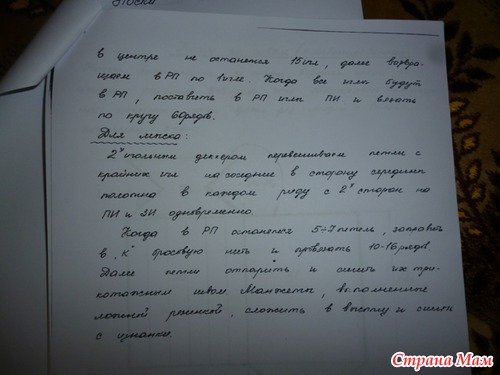 Носки
в центре не останется 15 игл, далее возвра-
щаем в РП по 1 игле. Когда все иглы будут
в РП, поставить в РП иглы ПИ и вязать
по кругу 60 рядов.
Для мыска:
2х игольным деккером перевешиваем петли с
крайних игл на соседние в сторону середины
полотна в каждом ряду с 2х сторон на
ПИ и ЗИ одновременно.
Когда в РП останется 5÷7 петель, заправить
в К бросовую нить и провязать 10-16 рядов.
Далее петли отпарить и сшить их три-
котажным швом. Манжеты, выполненные
ложной резинкой, сложить в высоту и сшить
с изнанки.
Страна Мам